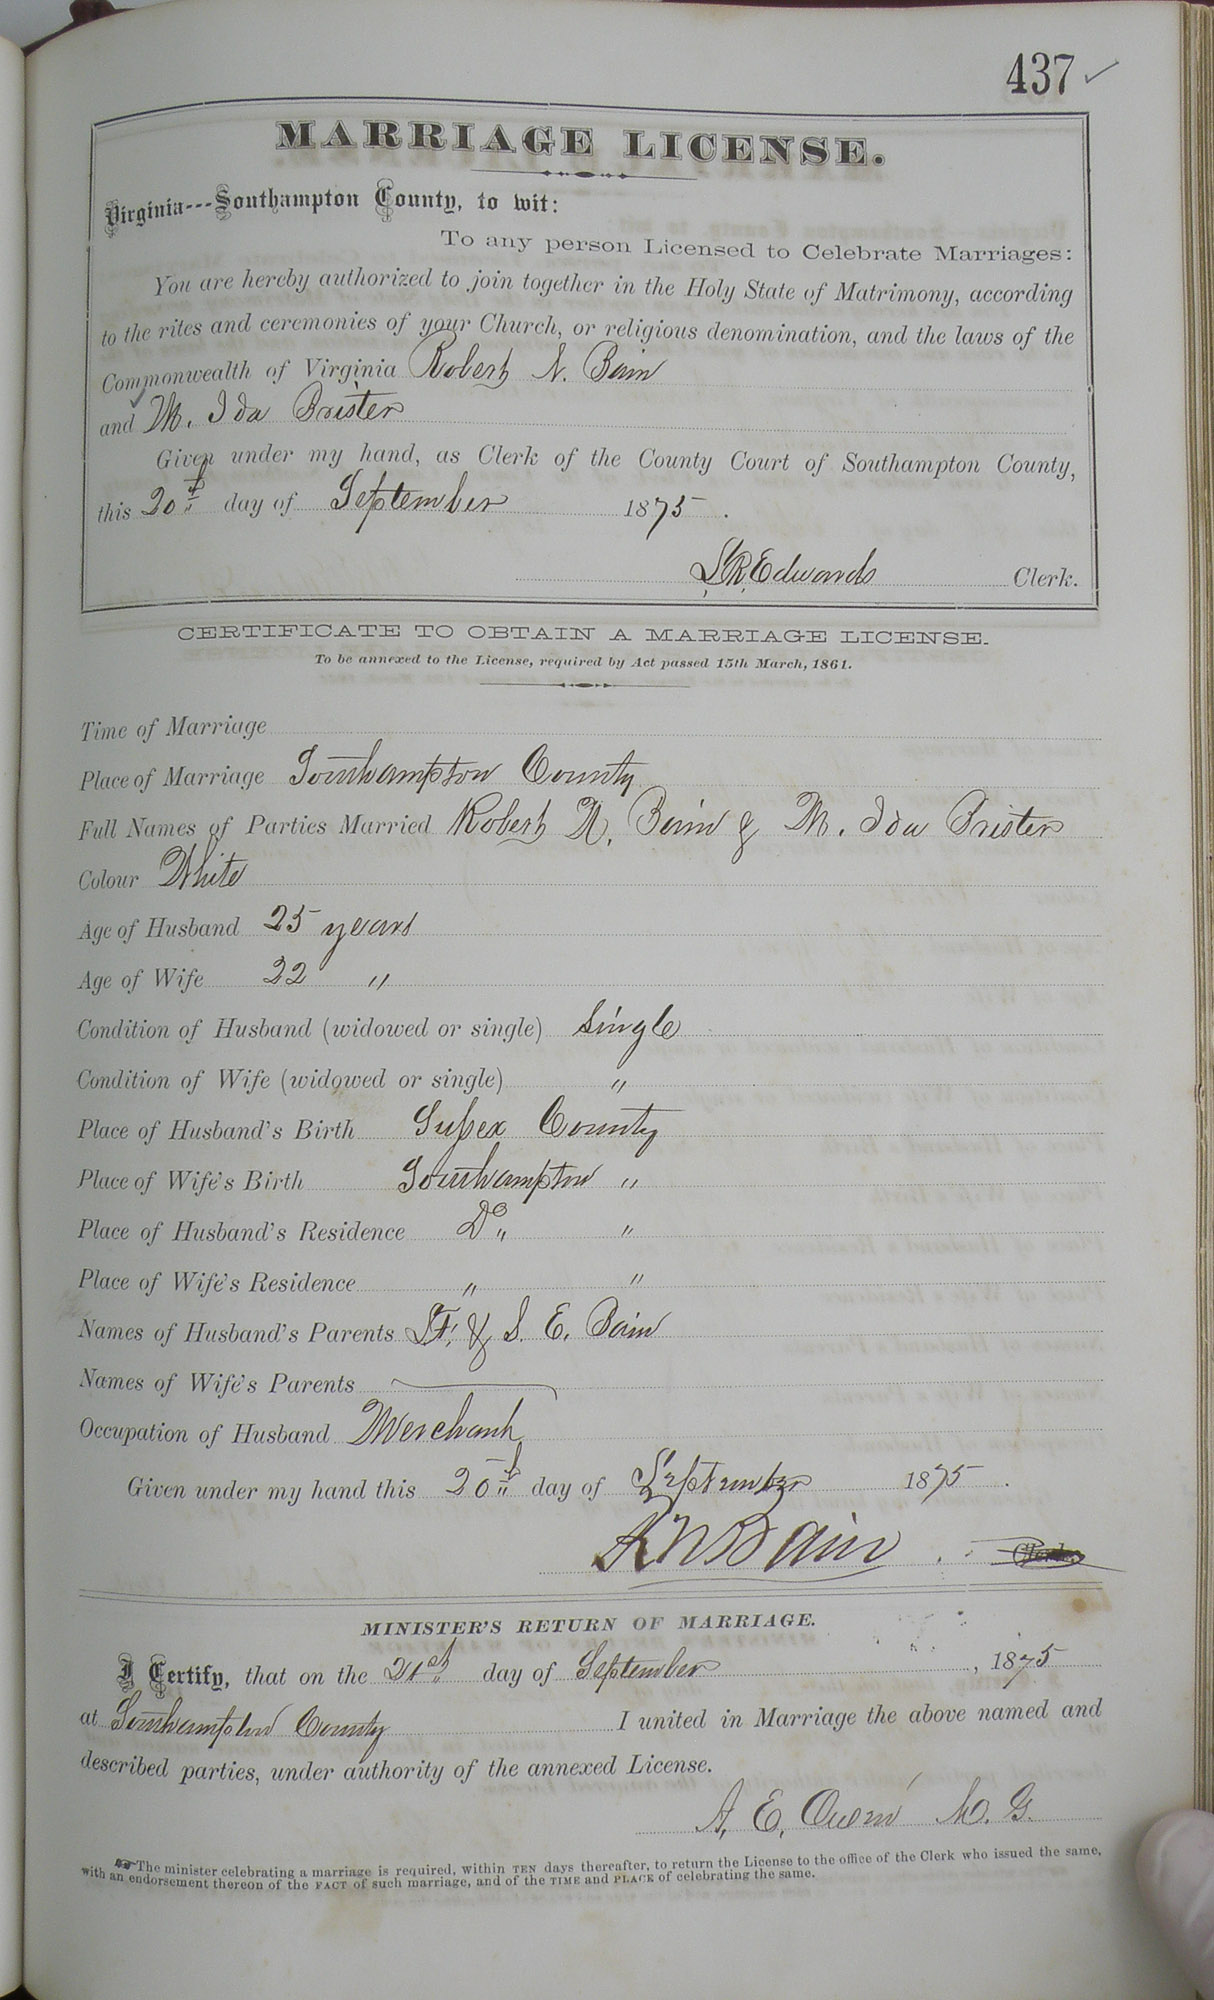 437 ✓
MARRIAGE LICENSE.
Virginia---Southampton County, to wit:
To any person Licensed to Celebrate Marriages:
You are hereby authorized to join together in the Holy State of Matrimony, according
to the rites and ceremonies of your Church, or religious denomination, and the laws of the
Commonwealth of Virginia Robert N. Bain
and M. Ida Brister
Given under my hand, as Clerk of the County Court of Southampton County,
this 20th day of September 1875.
L.R. Edwards Clerk.
CERTIFICATE TO OBTAIN A MARRIAGE LICENSE.
To be annexed to the License, required by Act passed 15th March, 1861.
Time of Marriage
Place of Marriage Southampton County
Full Names of Parties Married Robert N. Bain & M. Ida Brister
Colour White
Age of Husband 25 years
Age of Wife 22 "
Condition of Husband (widowed or single) Single
Condition of Wife (widowed or single) "
Place of Husband's Birth Sussex County
Place of Wife's Birth Southampton "
Place of Husband's Residence Do "
Place of Wife's Residence " "
Names of Husband's Parents & S. E. Bain
Names of Wife's Parents
Occupation of Husband Merchant
Given under my hand this 20th day of September 1875.
R N Bain Clerk.
MINISTER'S RETURN OF MARRIAGE.
I Certify, that on the 21st day of September, 1875
at Southampton County I united in Marriage the above named and
described parties, under authority of the annexed License.
A. E. Owen M. G.
The minister celebrating a marriage is required, within TEN days thereafter, to return the License to the office of the Clerk who issued the same,
with an endorsement thereon of the FACT of such marriage, and of the TIME and PLACE of celebrating the same.